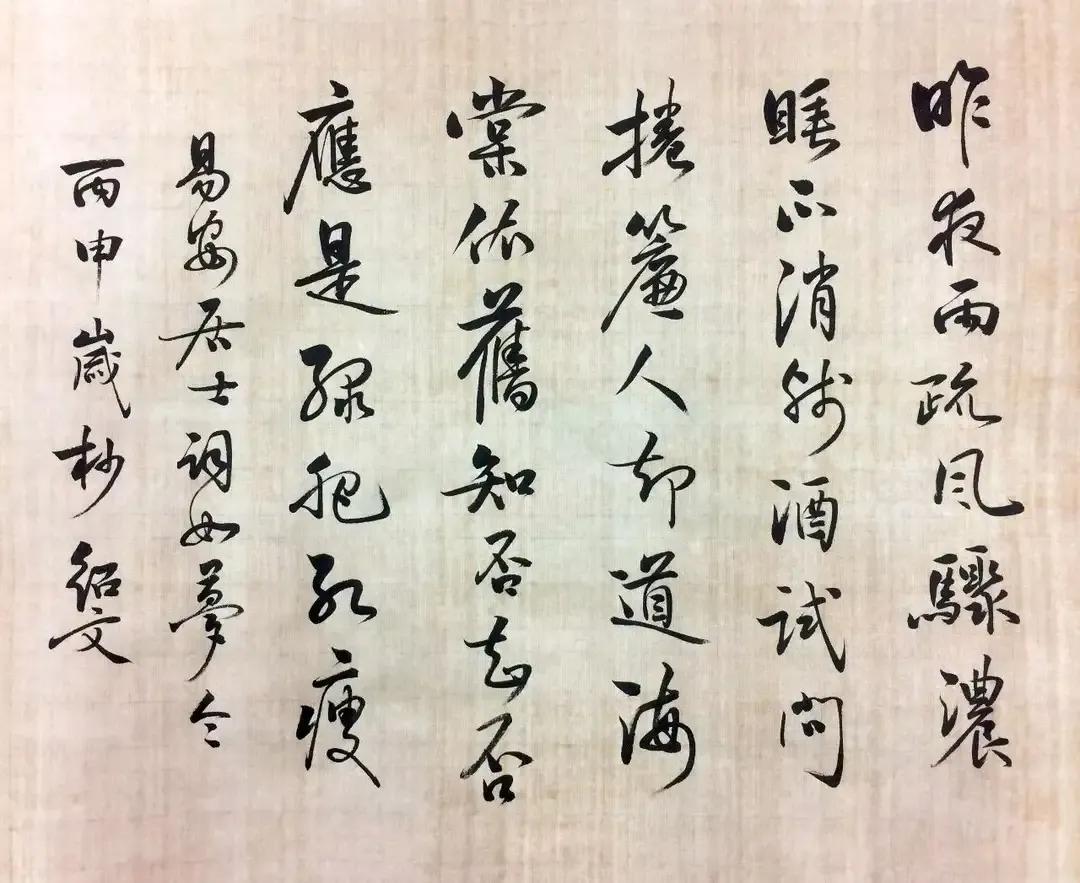 昨夜雨疏風驟濃
睡不消殘酒試問
捲簾人却道海
棠依舊知否知否
應是緑肥紅瘦
易安居士詞如夢令
丙申歲杪 紹文